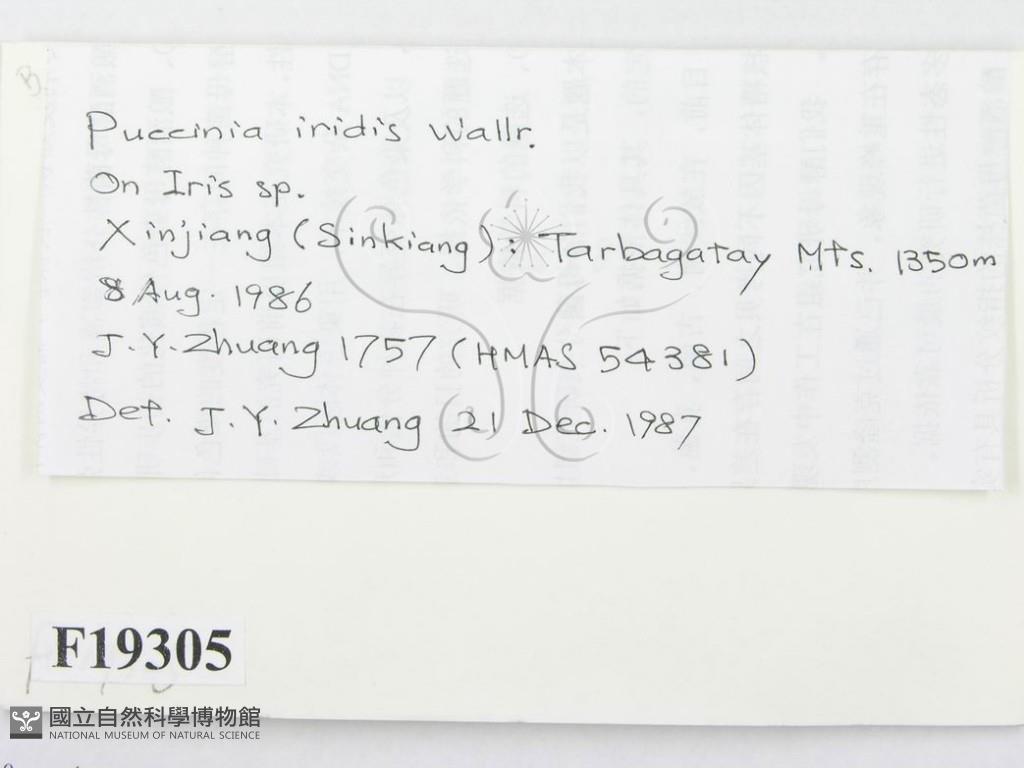 Puccinia iridis Wallr.
On Iris sp.
Xinjiang (Sinkiang): Tarbagatay Mts. 1350m
8 Aug. 1986
J.Y.Zhuang 1757 (HMAS 54381)
Det. J.Y. Zhuang 21 Dec. 1987
F19305
國立自然科學博物館
NATIONAL MUSEUM OF NATURAL SCIENCE